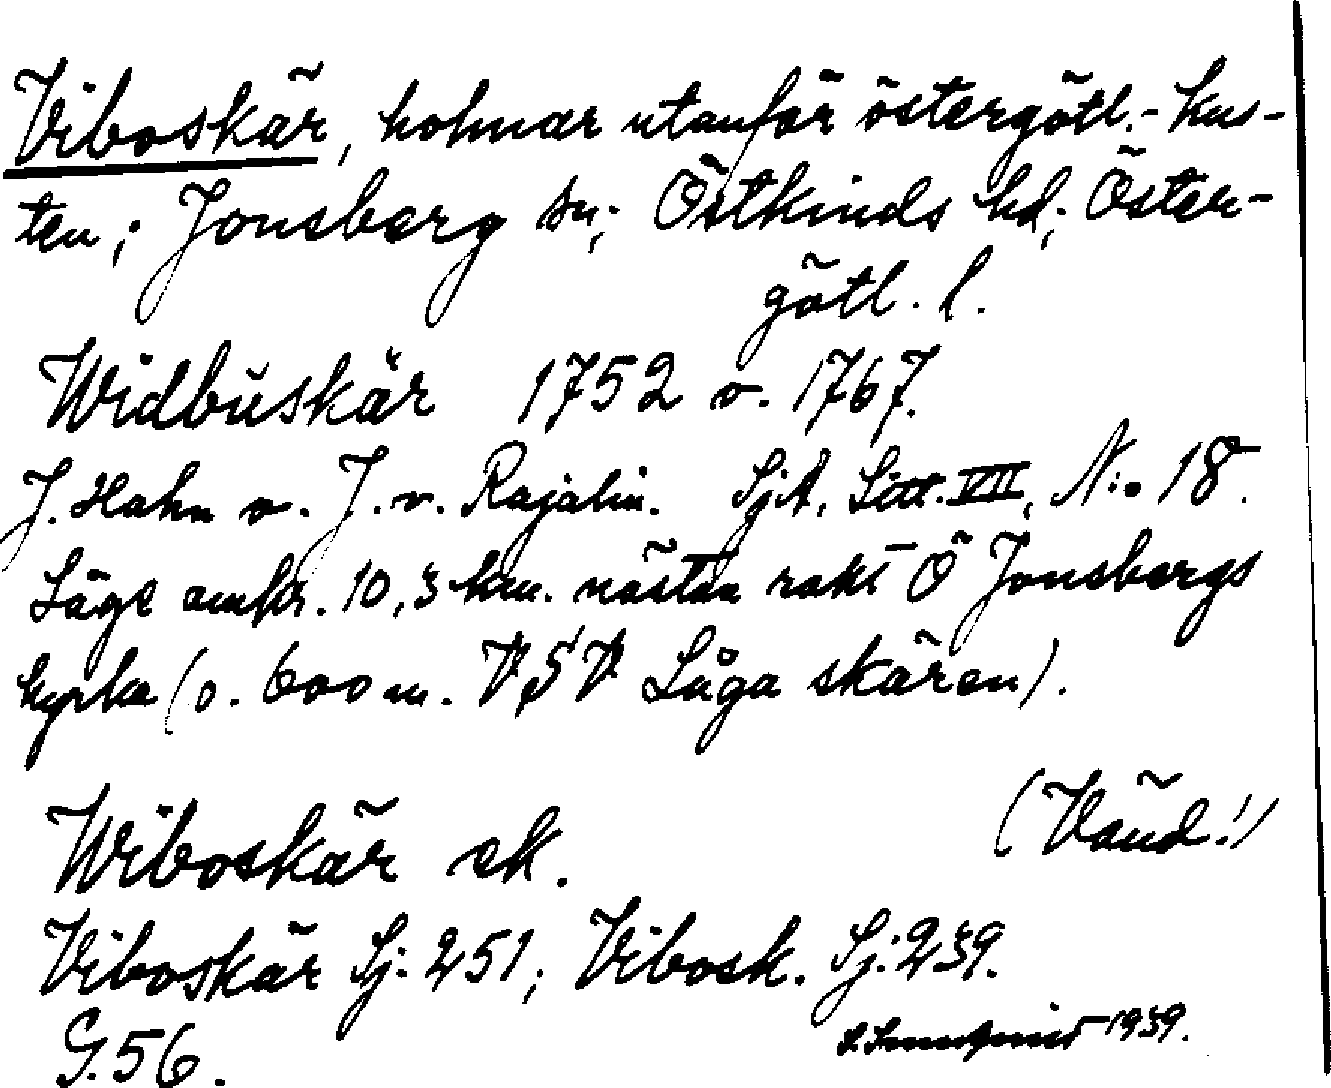 Viboskär, holmar utanför östergötl.- kus-
ten; Jonsberg sn; Östkinds hd; Öster-
götl. l.
Widbuskär 1752 o. 1767.
J. Hahn o. J. v. Rajalin. SjA, Litt. VII, N:o 18.
Läge omkr. 10,3 km. nästan rakt Ö Jonsbergs
kyrka (o. 600 m. VSV Låga skären).
(Vänd!)
Wiboskär ek.
Viboskär Sj. 251; Vibosk. Sj. 239.
G. 56.
1939.